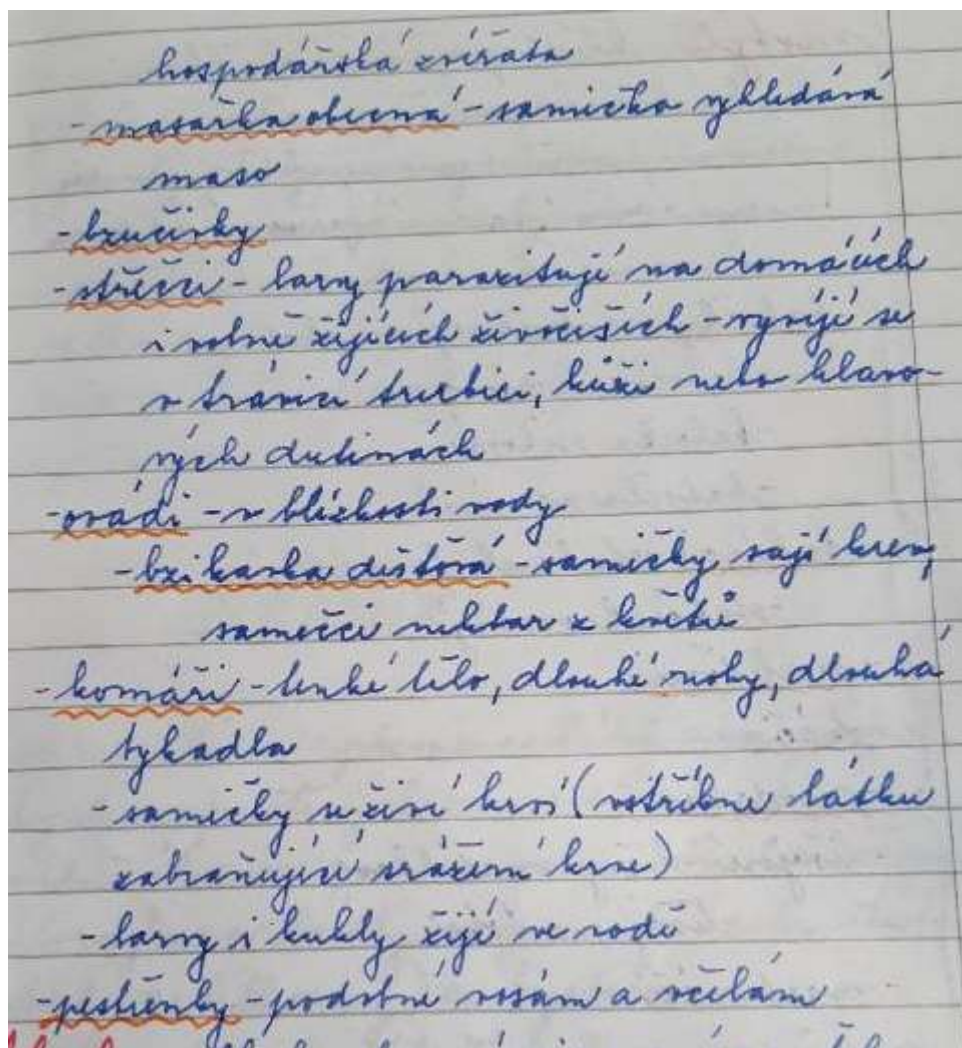 hospodářská zvířata
- masařka obecná - samička vyhledává
maso
- bzučivky
- střečci - larvy parazitují na domácích
i volně žijících živočiších - vyvíjí se
v trávicí trubici, kůži nebo hlavo-
vých dutinách
- ovádi - v blízkosti vody
- bzikavka dešťová - samičky sají krev,
samečci nektar z květů
- komáři - tenké tělo, dlouhé nohy, dlouhá
tykadla
- samičky se živí krví (vstříkne látku
zabraňující srážení krve)
- larvy i kukly žijí ve vodě
- pestřenky - podobné vosám a včelám